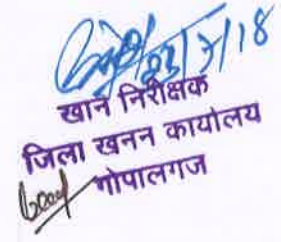 23/7/18
खान निरीक्षक
जिला खनन कार्यालय
गोपालगज